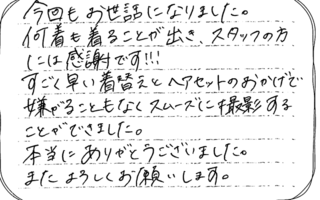 今回もお世話になりました。
何着も着ることが出き、スタッフの方
には感謝です!!!
すごく早い着替えとヘアセットのおかげで
嫌がることもなくスムーズに撮影する
ことができました。
本当にありがとうございました。
またよろしくお願いします。